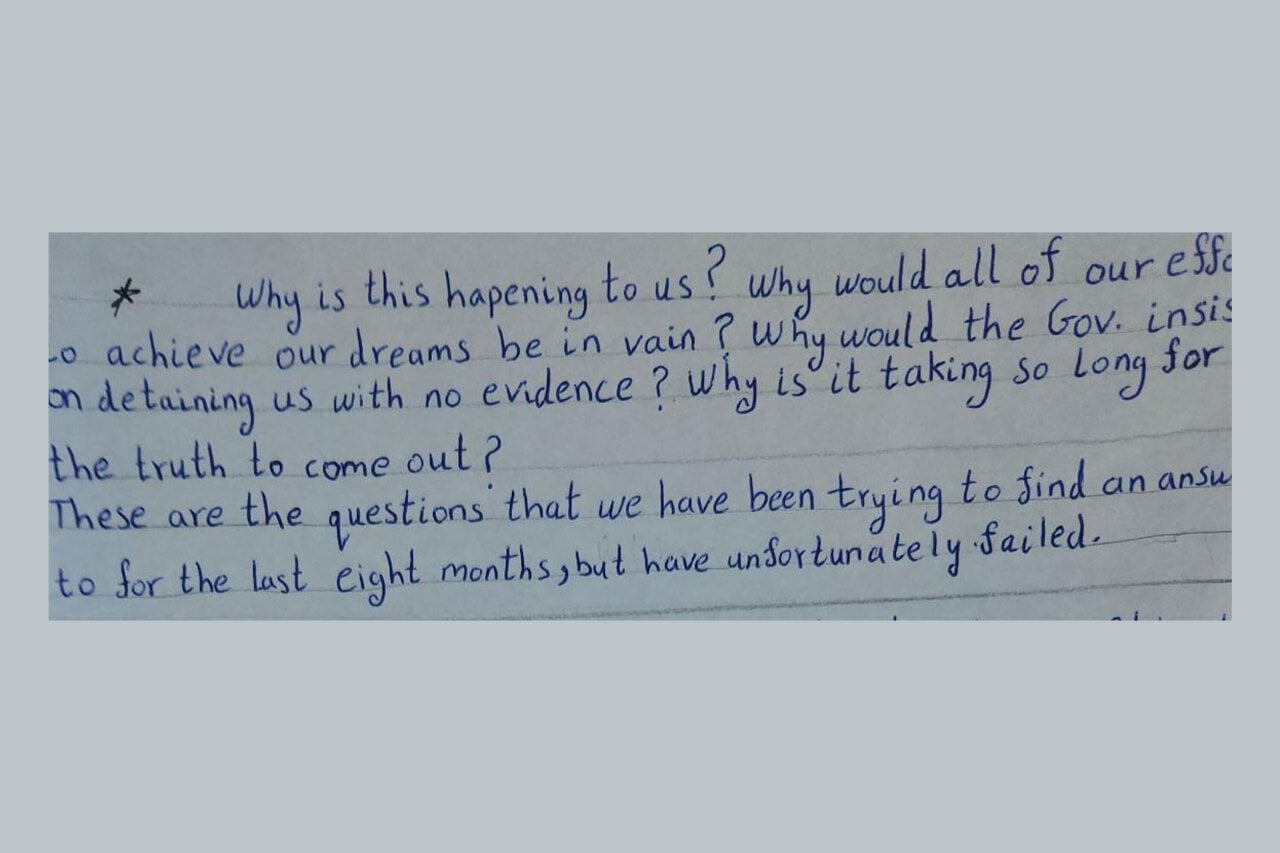 * Why is this hapening to us? Why would all of our effo
to achieve our dreams be in vain? Why would the Gov. insis
on detaining us with no evidence? Why is it taking so long for
the truth to come out?
These are the questions that we have been trying to find an answ
to for the last eight months, but have unfortunately failed.